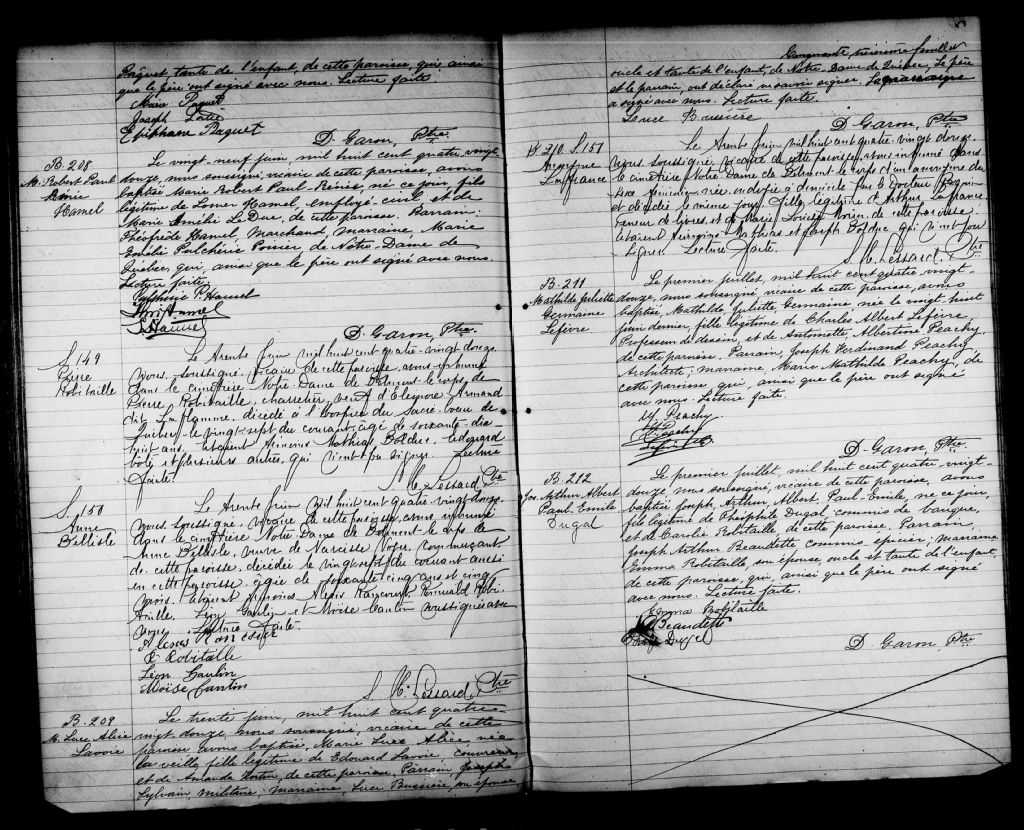 Pâquet tante de l'enfant, de cette paroisse, qui ainsi
que le père ont signé avec nous. Lecture faite
Marie Paquet
Joseph
Epiphane Paquet
D. Garon, Ptre
B. 208
M. Robert Paul
Hamel
Le vingt-neuf juin, mil huit cent quatre vingt
douze, nous soussigné, vicaire de cette paroisse, avons
baptisé Marie Robert Paul, né ce jour, fils
légitime de Hamel, employé civil et de
Marie Le Duc, de cette paroisse. Parrain:
Hamel Marchand, marraine, Marie
Pulchérie Poirier de Notre-Dame de
Québec, qui, ainsi que le père ont signé avec nous.
Lecture faite.
P. Hamel
Hamel
D. Garon, Ptre.
S. 149
Pierre
Robitaille
Le trente juin mil huit cent quatre-vingt douze
nous soussigné, vicaire de cette paroisse avons inhumé
dans le cimetière Notre Dame de Belmont le corps de
Pierre Robitaille, charretier, veuf d'Eléonore Armand
dit Laflamme, décédé à l'Hospice du Sacré-Coeur de
Québec le vingt-sept du courant, âgé de soixante-dix-
huit ans. Etaient témoins Mathias Bolduc, Edouard
et plusieurs autres, qui n'ont pu signer. Lecture
faite.
Lessard Ptre
S. 150
Anne
Bellisle
Le trente juin mil huit cent quatre-vingt-douze
nous soussigné, vicaire de cette paroisse, avons inhumé
dans le cimetière Notre Dame de Belmont le corps de
Anne Bellisle, veuve de Narcisse, commerçant
de cette paroisse, décédée le vingt-sept du courant aussi
en cette paroisse, âgée de soixante-cinq ans et cinq
mois. Etaient témoins Alexis
Léon Gaulin et Moïse Cantin soussignés avec
nous. Lecture faite.
E Robitaille
Léon Gaulin
Moïse Cantin
Lessard, Ptre
B. 209
M. Luce Alice
Lavoie
Le trente juin, mil huit cent quatre-
vingt douze, nous soussigné, vicaire de cette
paroisse avons baptisé, Marie Luce Alice née
la veille, fille légitime de Edouard Lavoie, couvreur
et de Amanda, de cette paroisse, Parrain Joseph
Sylvain, militaire; marraine, Luce Bussière, son épouse
Cinquante troisième feuillet
oncle et tante de l'enfant, de Notre-Dame de Québec. Le père
et le parrain, ont déclaré ne savoir signer. La marraine
a signé avec nous. Lecture faite.
Luce Bussière
D. Garon, Ptre
B 210 S. 151
Anonyme
Lafrance
Le trente juin mil huit cent quatre-vingt-douze
nous soussigné, vicaire de cette paroisse, avons inhumé dans
le cimetière Notre-Dame de Belmont le corps d'un anonyme du
sexe féminin née, ondoyée à domicile par le Docteur
et décédée le même jour, fille légitime d'Arthur Lafrance
teneur de livres, et de Marie, de cette paroisse.
Etaient témoins Mathias et Joseph Bolduc qui n'ont pu
signer. Lecture faite.
Lessard Ptre
B. 211
Mathilde Juliette
Germaine
Lefèvre
Le premier juillet, mil huit cent quatre vingt-
douze, nous soussigné, vicaire de cette paroisse, avons
baptisé, Mathilde, Juliette, Germaine née le vingt huit
juin dernier, fille légitime de Charles Albert Lefèvre,
Professeur de dessin, et de Antoinette, Albertine Peachy
de cette paroisse. Parrain, Joseph Ferdinand Peachy
Architecte; marraine, Marie Mathilde Peachy, de
cette paroisse, qui, ainsi que le père ont signé
avec nous. Lecture faite.
M Peachy
Peachy
D. Garon, Ptre
B. 212
Jos. Arthur Albert
Paul-Emile
Dugal
Le premier juillet, mil huit cent quatre-vingt-
douze, nous soussigné, vicaire de cette paroisse, avons
baptisé, Joseph, Arthur, Albert, Paul-Emile, né ce jour,
fils légitime de Théophile Dugal commis de banque,
et de Robitaille de cette paroisse. Parrain,
Joseph Arthur Beaudette commis épicier; marraine
Emma Robitaille, son épouse, oncle et tante de l'enfant,
de cette paroisse, qui, ainsi que le père ont signé
avec nous. Lecture faite.
Emma Robitaille
Beaudette
Dugal
D. Garon, Ptre